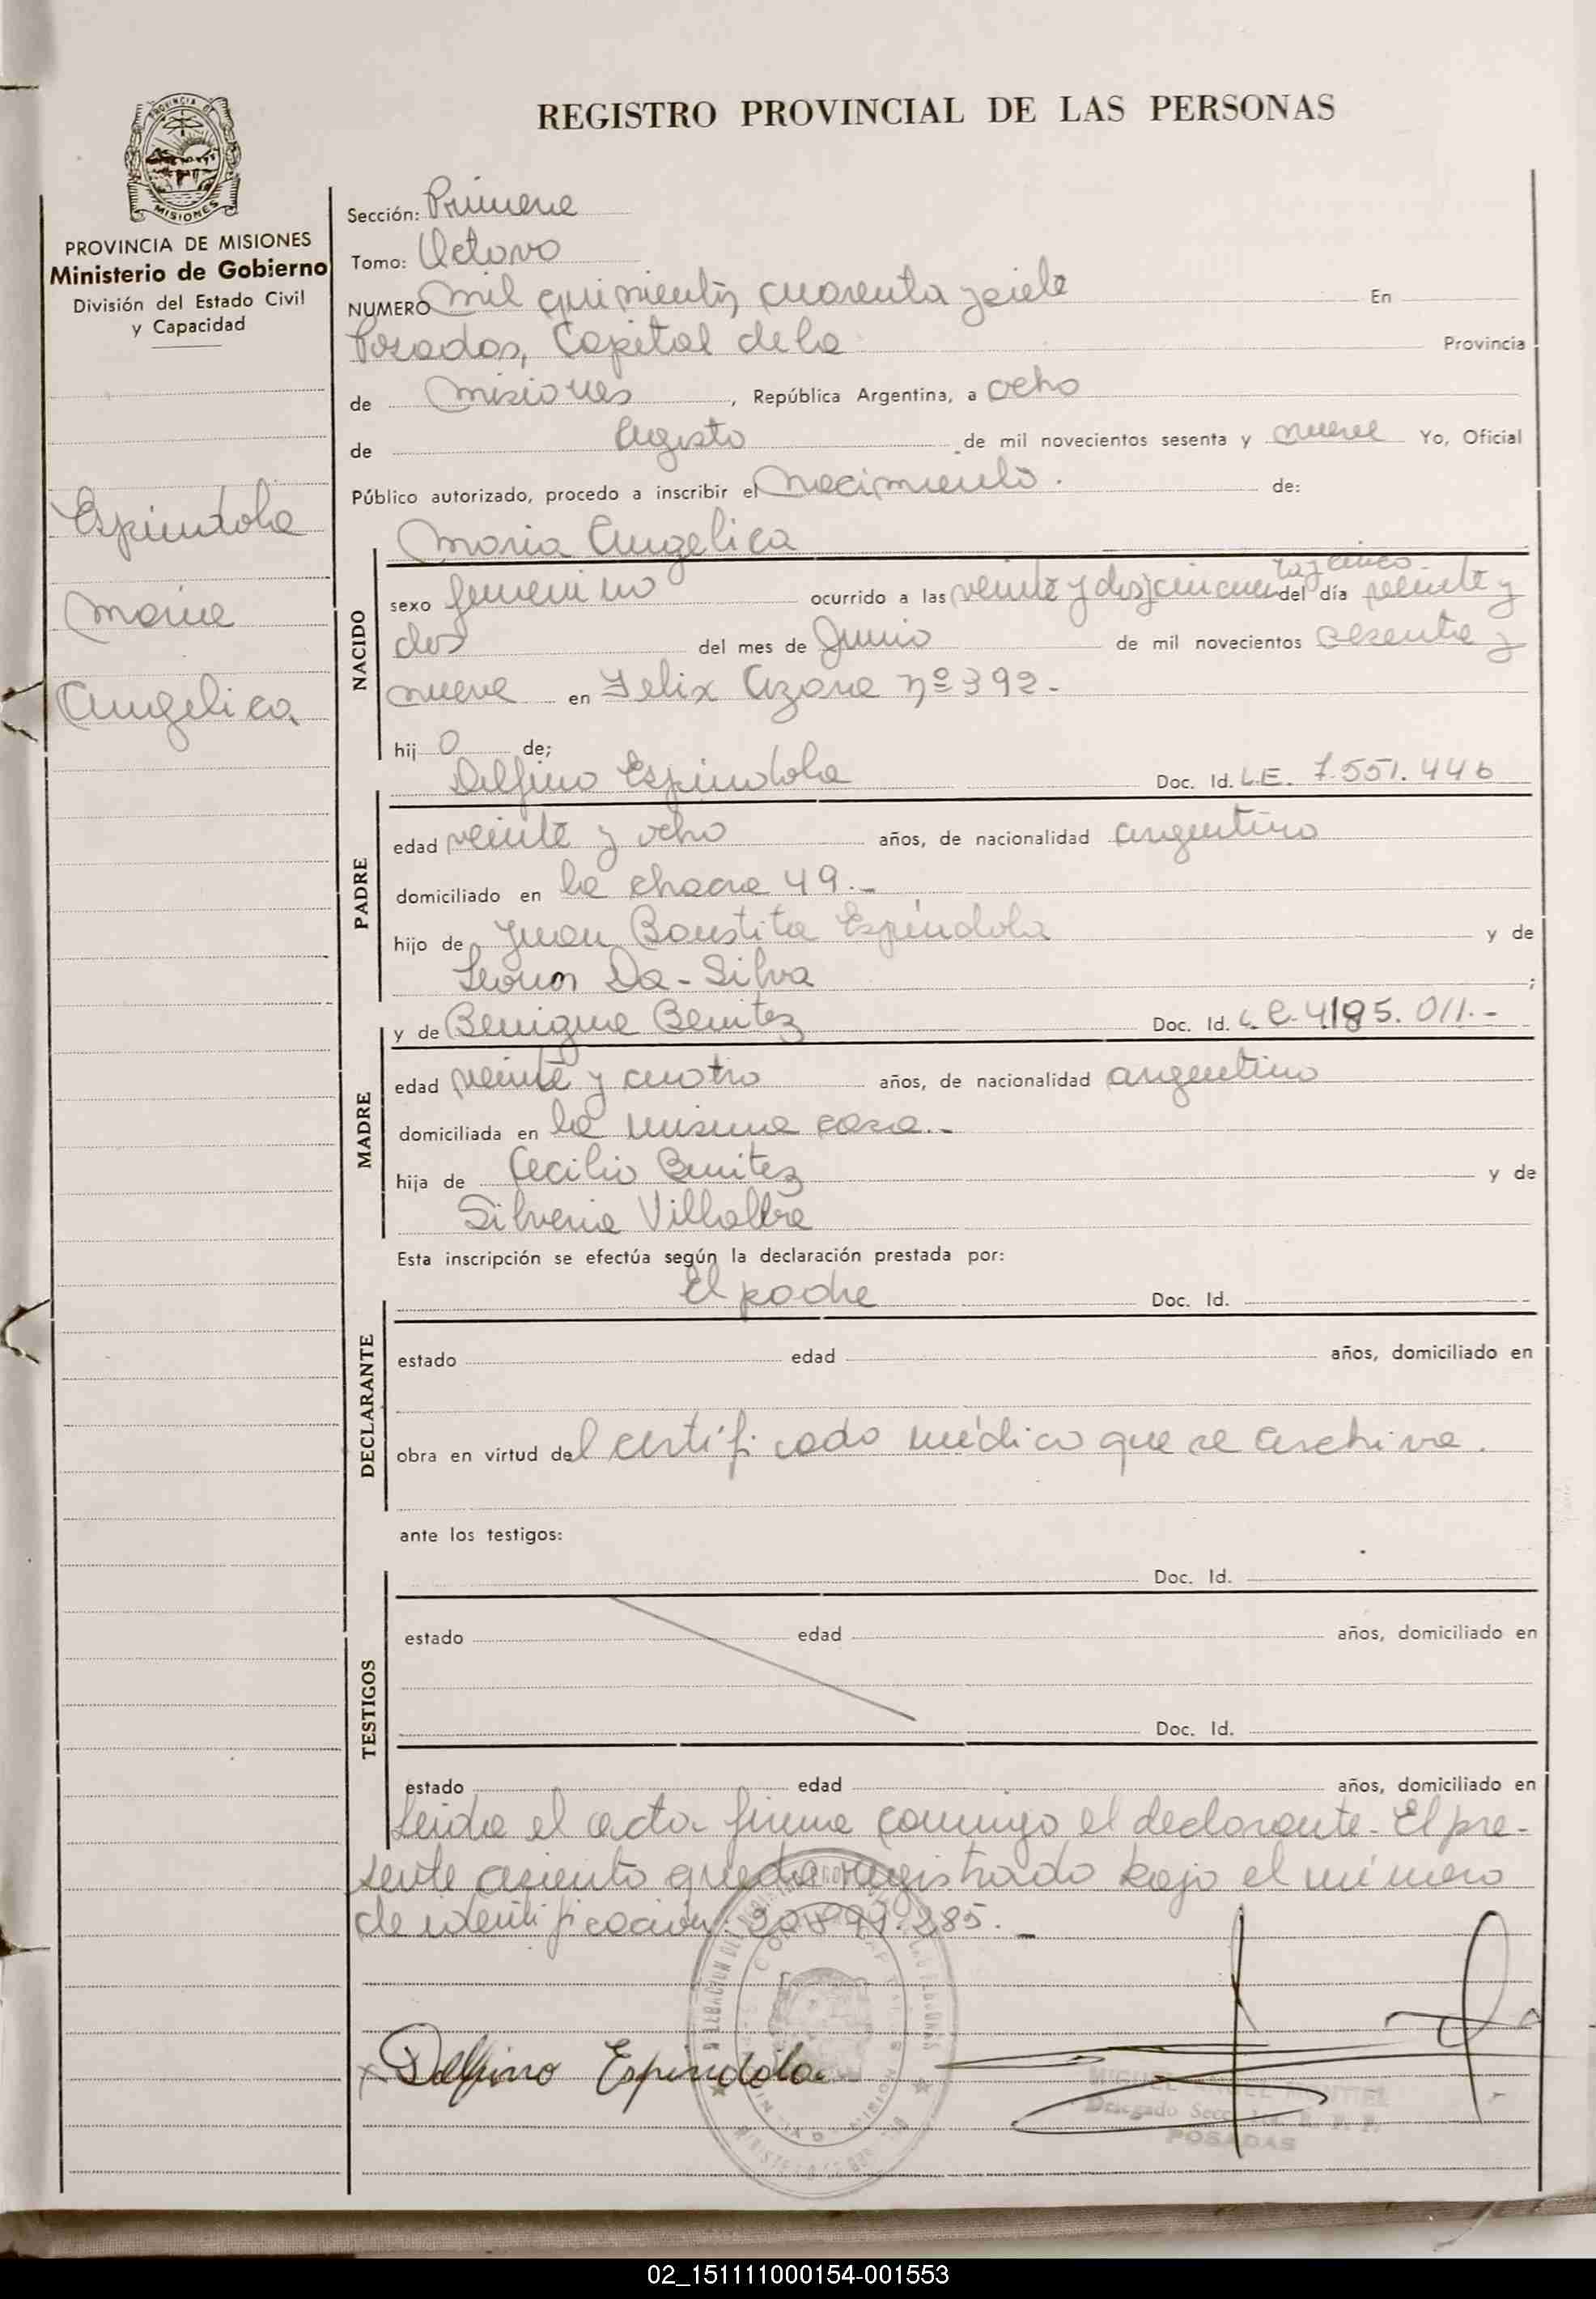 REGISTRO PROVINCIAL DE LAS PERSONAS
PROVINCIA DE
MISIONES
PROVINCIA DE MISIONES
Ministerio de Gobierno
División del Estado Civil
y Capacidad
Espindola
Maria
Angelica
Sección: Primera
Tomo: Octavo
NUMERO mil quinientos cuarenta y siete En
Posadas, Capital de la Provincia
de Misiones, República Argentina, a ocho
de Agosto de mil novecientos sesenta y nueve Yo, Oficial
Público autorizado, procedo a inscribir el Nacimiento. de:
Maria Angelica
NACIDO
sexo femenino ocurrido a las veinte y dos y cincuenta y cinco del día veinte y
dos del mes de Junio de mil novecientos sesenta y
nueve en Felix Azara nº 392.-
hij o de;
Delfino Espindola Doc. Id. L.E. 7.551.446
PADRE
edad veinte y ocho años, de nacionalidad argentino
domiciliado en la chacra 49.-
hijo de Juan Bautista Espíndola y de
Leonor Da-Silva ;
y de Benigna Benitez Doc. Id. L.C. 4.185.011.-
MADRE
edad veinte y cuatro años, de nacionalidad argentino
domiciliada en la misma casa.-
hija de Cecilio Benitez y de
Silveria Villalba
Esta inscripción se efectúa según la declaración prestada por:
El padre Doc. Id.
DECLARANTE
estado edad años, domiciliado en
obra en virtud del certificado médico que se archiva.
ante los testigos:
Doc. Id.
TESTIGOS
estado edad años, domiciliado en
Doc. Id.
estado edad años, domiciliado en
Leida el acta firma conmigo el declarante. El pre-
sente asiento queda registrado bajo el número
de identificación: 285.-
Delfino Espindola
MIGUEL ANGEL
Delegado Secc. 1ra. R. P. P.
POSADAS
02_151111000154-001553